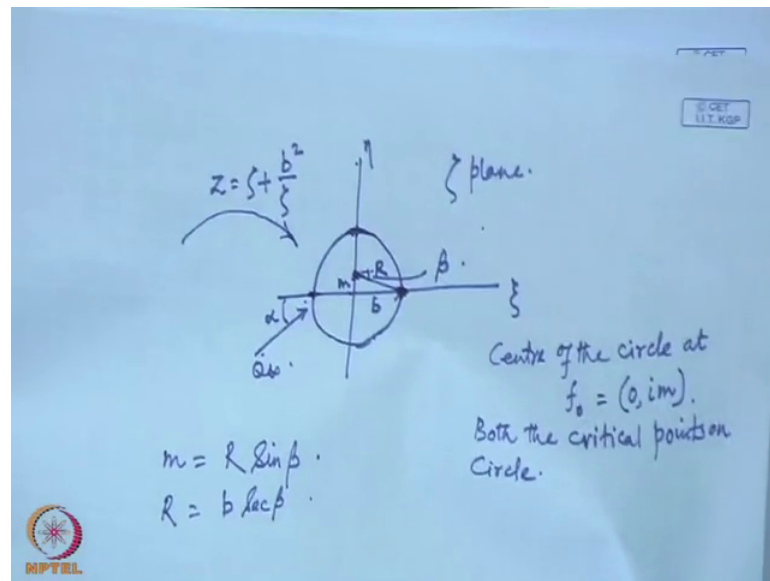 © CET
I.I.T. KGP
η
z = ζ + b²/ζ
ζ plane.
m
R
β.
b
ξ
α
Q∞.
Centre of the circle at
f₀ = (0, im).
Both the critical points on
Circle.
m = R Sinβ.
R = b Secβ.
NPTEL